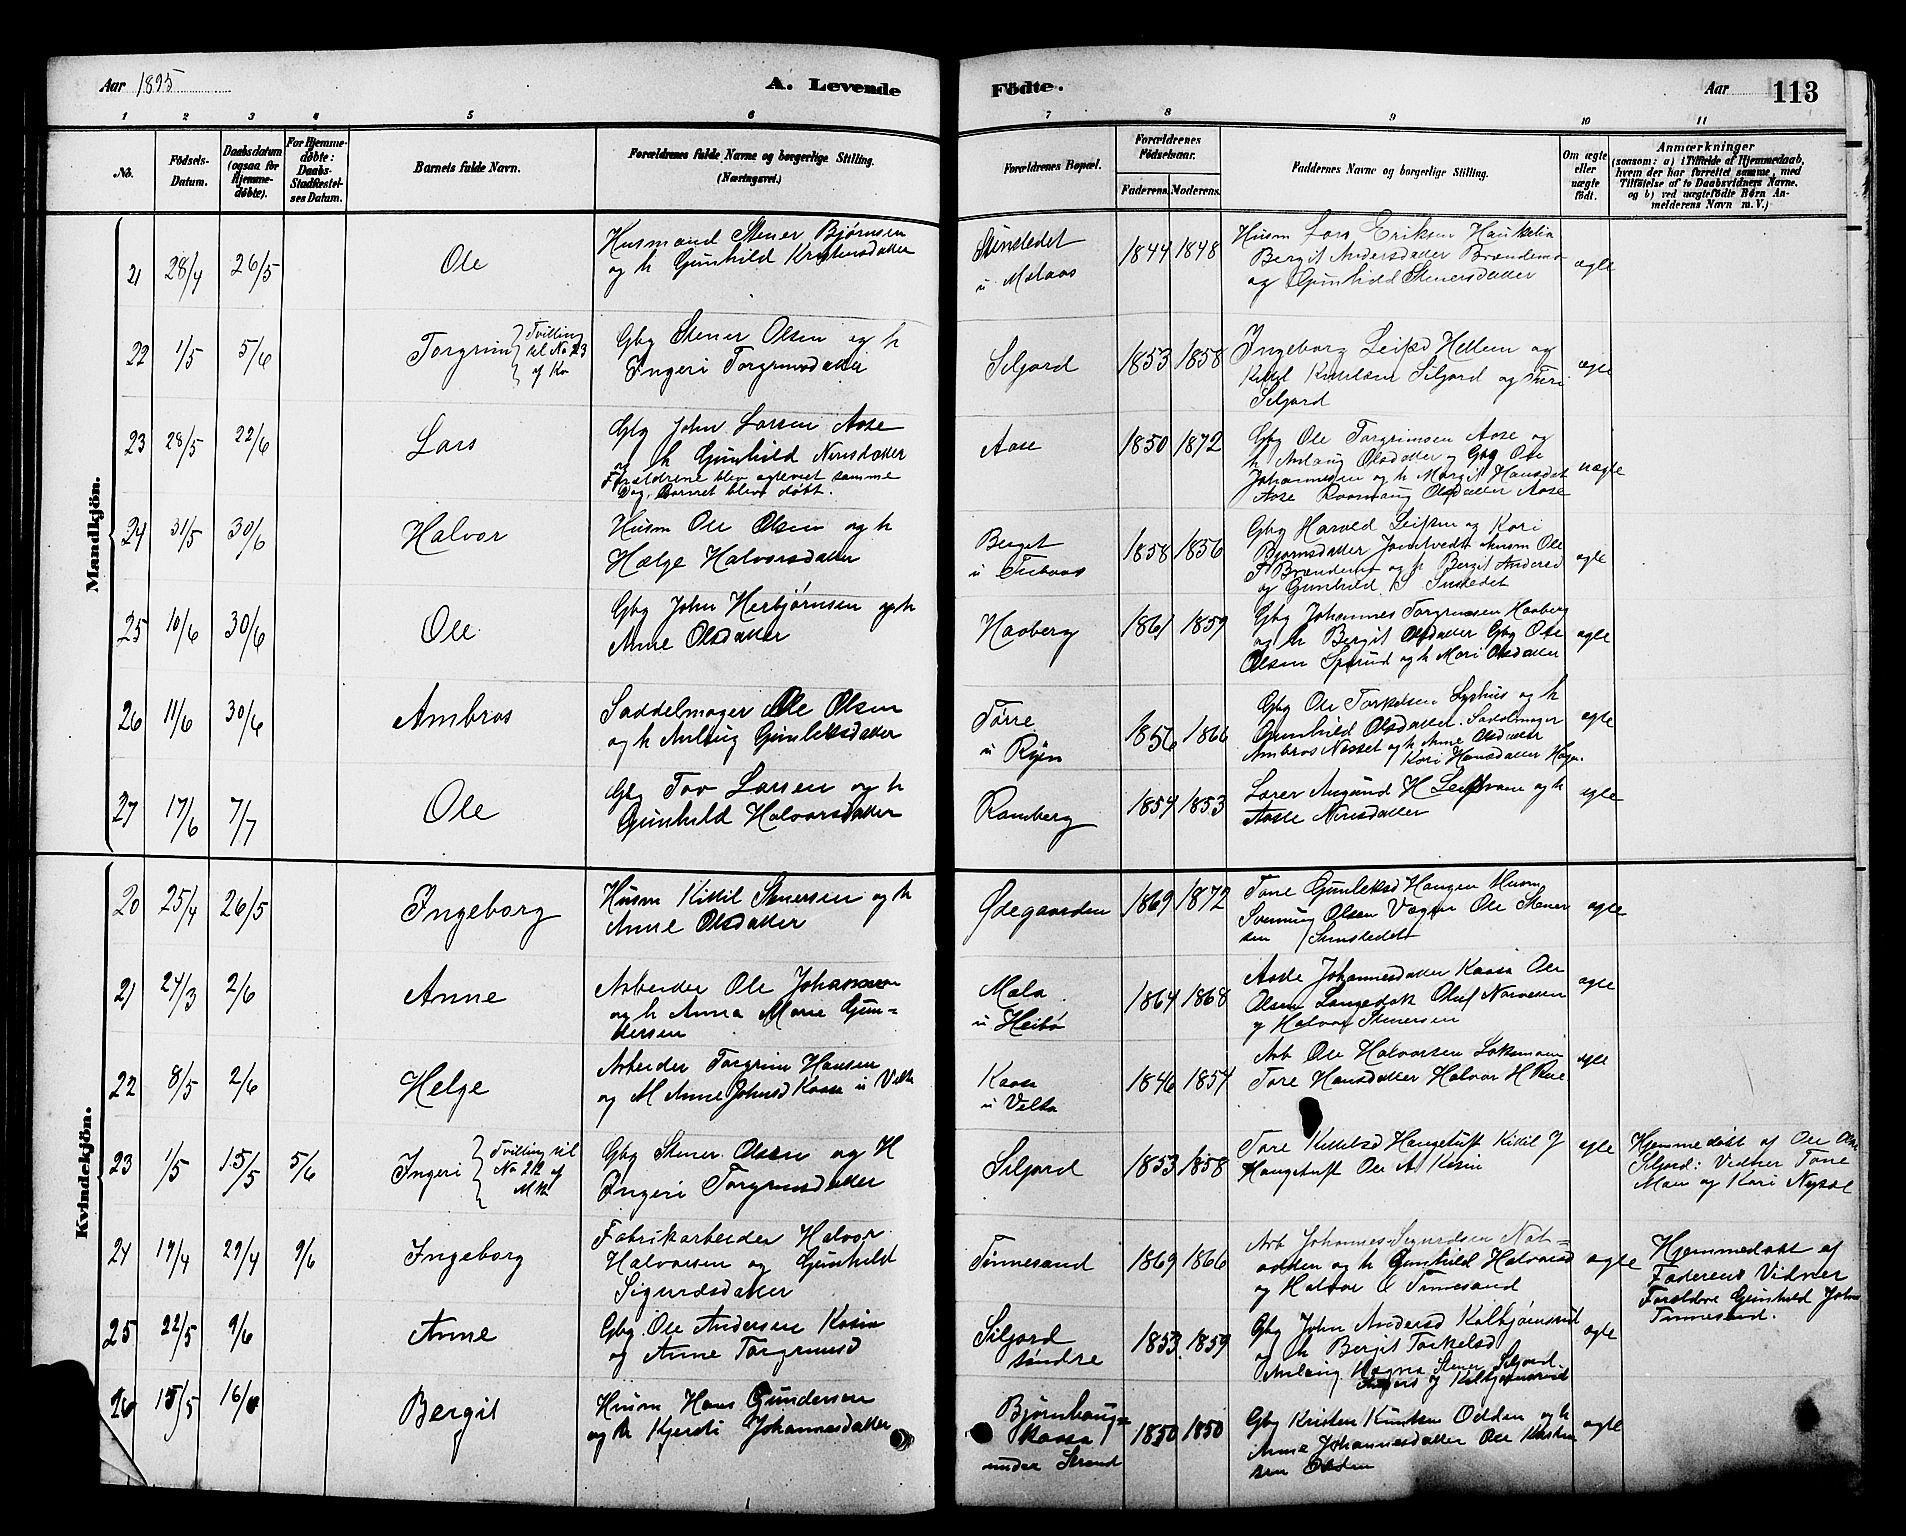 Aar 1895
A. Levende
Födte.
Aar
113
1 2 3 4 5 6 7 8 9 10 11
No.
Födsels-
Datum.
Daabsdatum
(ogsaa for
Hjemme-
döbte).
For Hjemme-
döbte:
Daabs-
Stadfæstel-
ses Datum.
Barnets fulde Navn.
Forældrenes fulde Navne og borgerlige Stilling.
(Næringsvei.)
Forældrenes Bopæl.
Forældrenes
Födselsaar.
Faderens. Moderens.
Faddernes Navne og borgerlige Stilling.
Om ægte
eller
uægte
födt.
Anmærkninger
(saasom: a) i Tilfælde af Hjemmedaab,
hvem der har forrettet samme, med
Tilföielse af to Daabsvidners Navne,
og b) ved uægtefödte Börn An-
melderens Navn m. V.)
Mandkjön.
21 28/4 26/5
Ole
Husmand Stener Bjørnsen
og h Gunhild Kristensdatter
1844 1848
Husm Lars Eriksen Haukelia
Bergit Andersdatter
og Gunhild Stenersdatter
ægte
22 1/5 5/6
Torgrim
Tvilling
til No 23
af Kv
Gbg Stener Olsen og h
Ingeri Torgrimsdatter
Seljord
1853 1858
Ingeborg Leifsd Hellem og
Kittil Kittilsen Siljord og Turi
Seljord
ægte
23 28/5 22/6
Lars
Gbg John Larsen Aase
og h Gunhild Nirisdatter
Forældrene blev ægteviet samme
Dag, Barnet blev døbt.
Aase
1850 1872
Gbg Ole Torgrimsen Aase og
h Anlaug Olsdatter og Gbg Ole
Johannesen og h Margit Hansdat
Aase Olsdatter Aase
uægte
24 31/5 30/6
Halvor
Husm Ole Olsen og h
Hælge Halvorsdatter
Berget
1858 1856
Gbg Harald Leifsen og Kari
Bjørnsdatter Husm Ole
og h Bergit Andersd
og Gunhild S
ægte
25 10/6 30/6
Ole
Gbg John Herbjørnsen og h
Anne Olsdatter
Haaberg
1861 1859
Gbg Johannes Torgrimsen Haaberg
og h Bergit Olsdatter Gbg Ole
Olsen og h Mari Olsdatter
ægte
26 11/6 30/6
Ambros
Saddelmager Ole Olsen
og h Anlaug Gunleksdatter
Tørre
u Ryen
1856 1866
Gbg Ole Torkelsen Lyshus og h
Gunhild Olsdatter. Saddelmager
Ambros Næsset og h Anne Olsdatter
Kari Hansdatter
ægte
27 17/6 7/7
Ole
Gbg Tov Larsen og h
Gunhild Halvorsdatter
Ramberg
1854 1853
Lærer Amund H og h
Aase Nirisdatter
ægte
Kvindekjön.
20 25/4 26/5
Ingeborg
Husm Kittil Stenersen og h
Anne Olsdatter
Ødegaarden
1869 1872
Tone Gunleksd Haugen Husm
Svenung Olsen Ole Stener
sen
ægte
21 27/3 2/6
Anne
Arbeider Ole Johannesen
og h Anna Marie Gun=
dersen
Mala
u Heibø
1864 1868
Aase Johannesdatter Kaasa Ole
Olsen Langedok Oluf Narvesen
og Halvor Stenersen
ægte
22 8/5 2/6
Helge
Arbeider Torgrim Hansen
og M Anne Johnsd Kaasa u Velta
Kaasa
u Velta
1846 1854
Arb Ole Halvorsen
Tore Hansdatter Halvor H
ægte
23 1/5 15/5 5/6
Ingeri
Tvilling til
No 22 af
Mk
Gbg Stener Olsen og H
Ingeri Torgrimsdatter
Seljord
1853 1858
Tore Kittilsd Haugetuft Kittil J
Haugetuft Ole A Kasin
ægte
Hjemmedøbt af Ole Olsen
Seljord: Vidner Tone
og Kari
24 17/4 29/4 9/6
Ingeborg
Fabrikarbeider Halvor
Halvorsen og Gunhild
Sigurdsdatter
Tinnesand
1869 1866
Arb Johannes Sigurdsen Not=
odden og h Gunhild Halvorsd
og Halvor Tinnesand
ægte
Hjemmedøbt af
Faderens Vidner
Forældre Gunhild Johns
Tinnesand.
25 22/5 9/6
Anne
Gbg. Ole Andersen Kasin
og Anne Torgrimsd
Siljord
søndre
1853 1859
Gbg John Andersd Kolbjørnsrud
og h Bergit Torkelsd
Anlaug Stener Siljord
ægte
26 15/5 16/6
Bergit
Husm Hans Gundersen
og h Kjersti Johannesdatter
Bjørnhaug=
kaasa
under Strand
1850 1850
Gbg Kristen Knutsen Odden og h
Anne Johannesdatter Ole Kristen
sen Odden
ægte